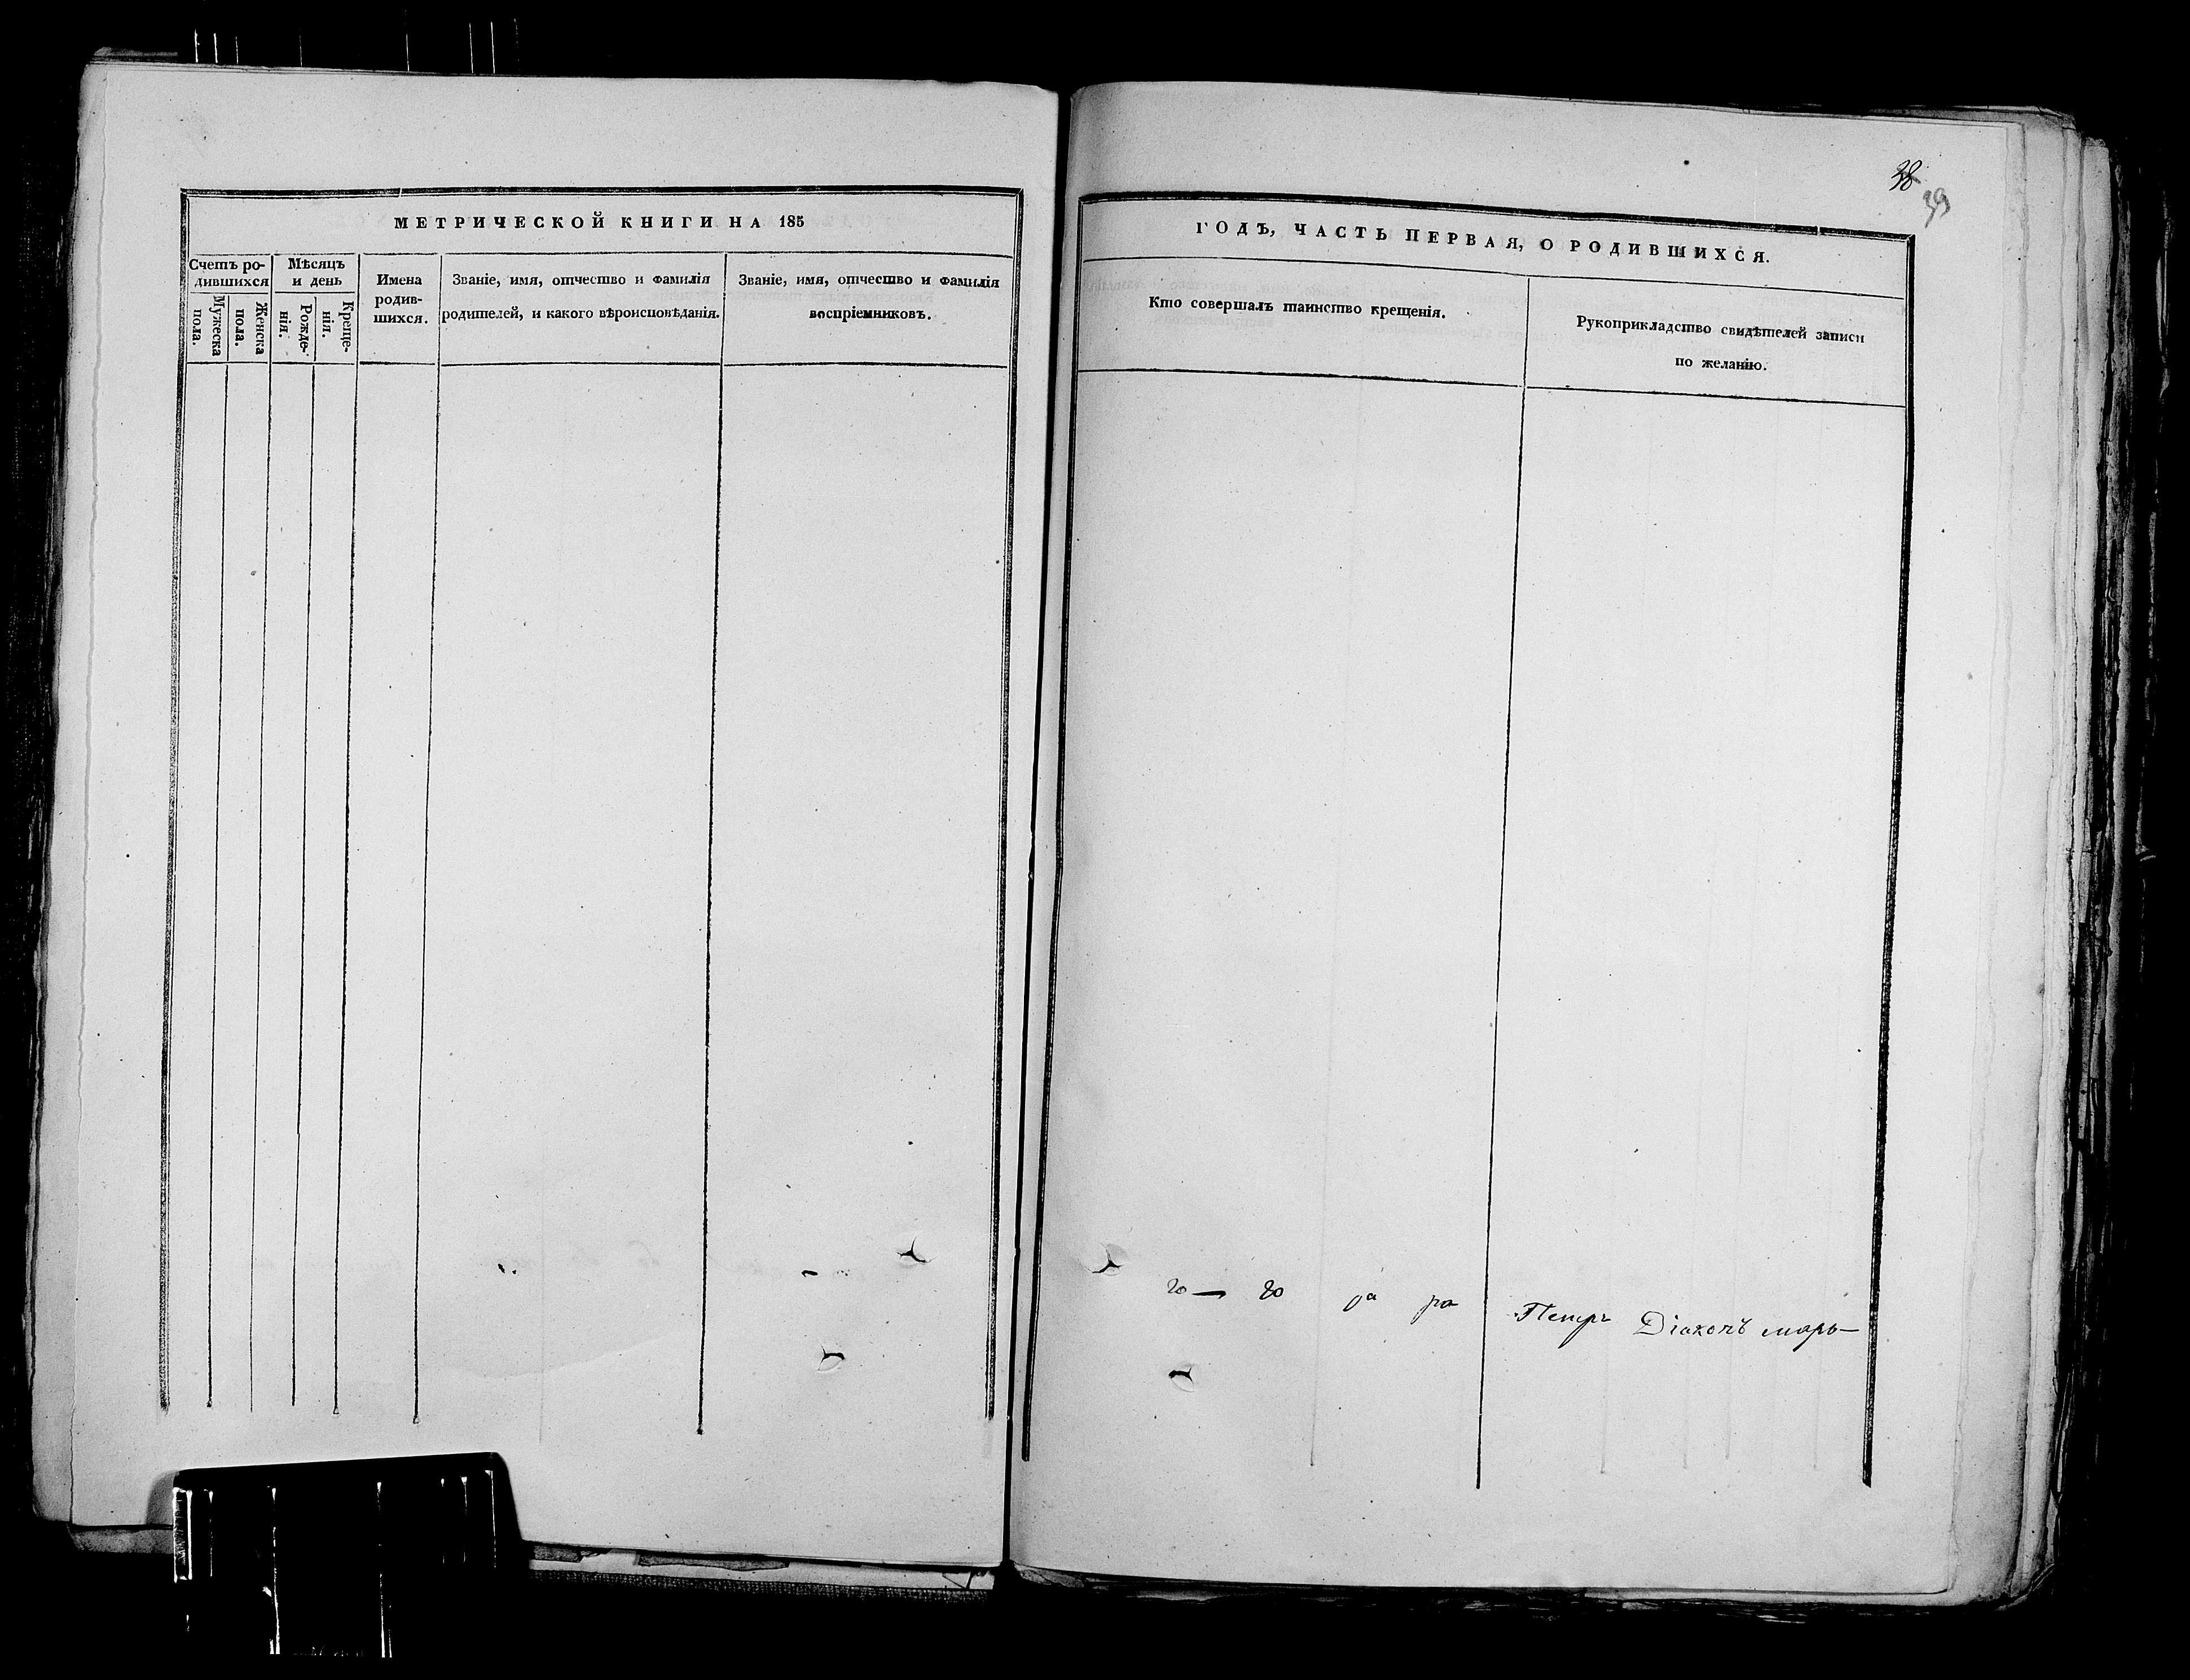 38
39
МЕТРИЧЕСКОЙ КНИГИ НА 185
Счетъ ро-
дившихся
Мужеска
пола.
Женска
пола.
Мѣсяцъ
и день
Рожде-
нія.
Креще-
нія.
Имена
родив-
шихся.
Званіе, имя, отчество и Фамилія
родителей, и какого вѣроисповѣданія.
Званіе, имя, отчество и Фамилія
воспріемниковъ.
ГОДЪ, ЧАСТЬ ПЕРВАЯ, О РОДИВШИХСЯ.
Кто совершалъ таинство крещенія.
Рукоприкладство свидѣтелей записи
по желанію.
го — го ра Петръ Діаконъ